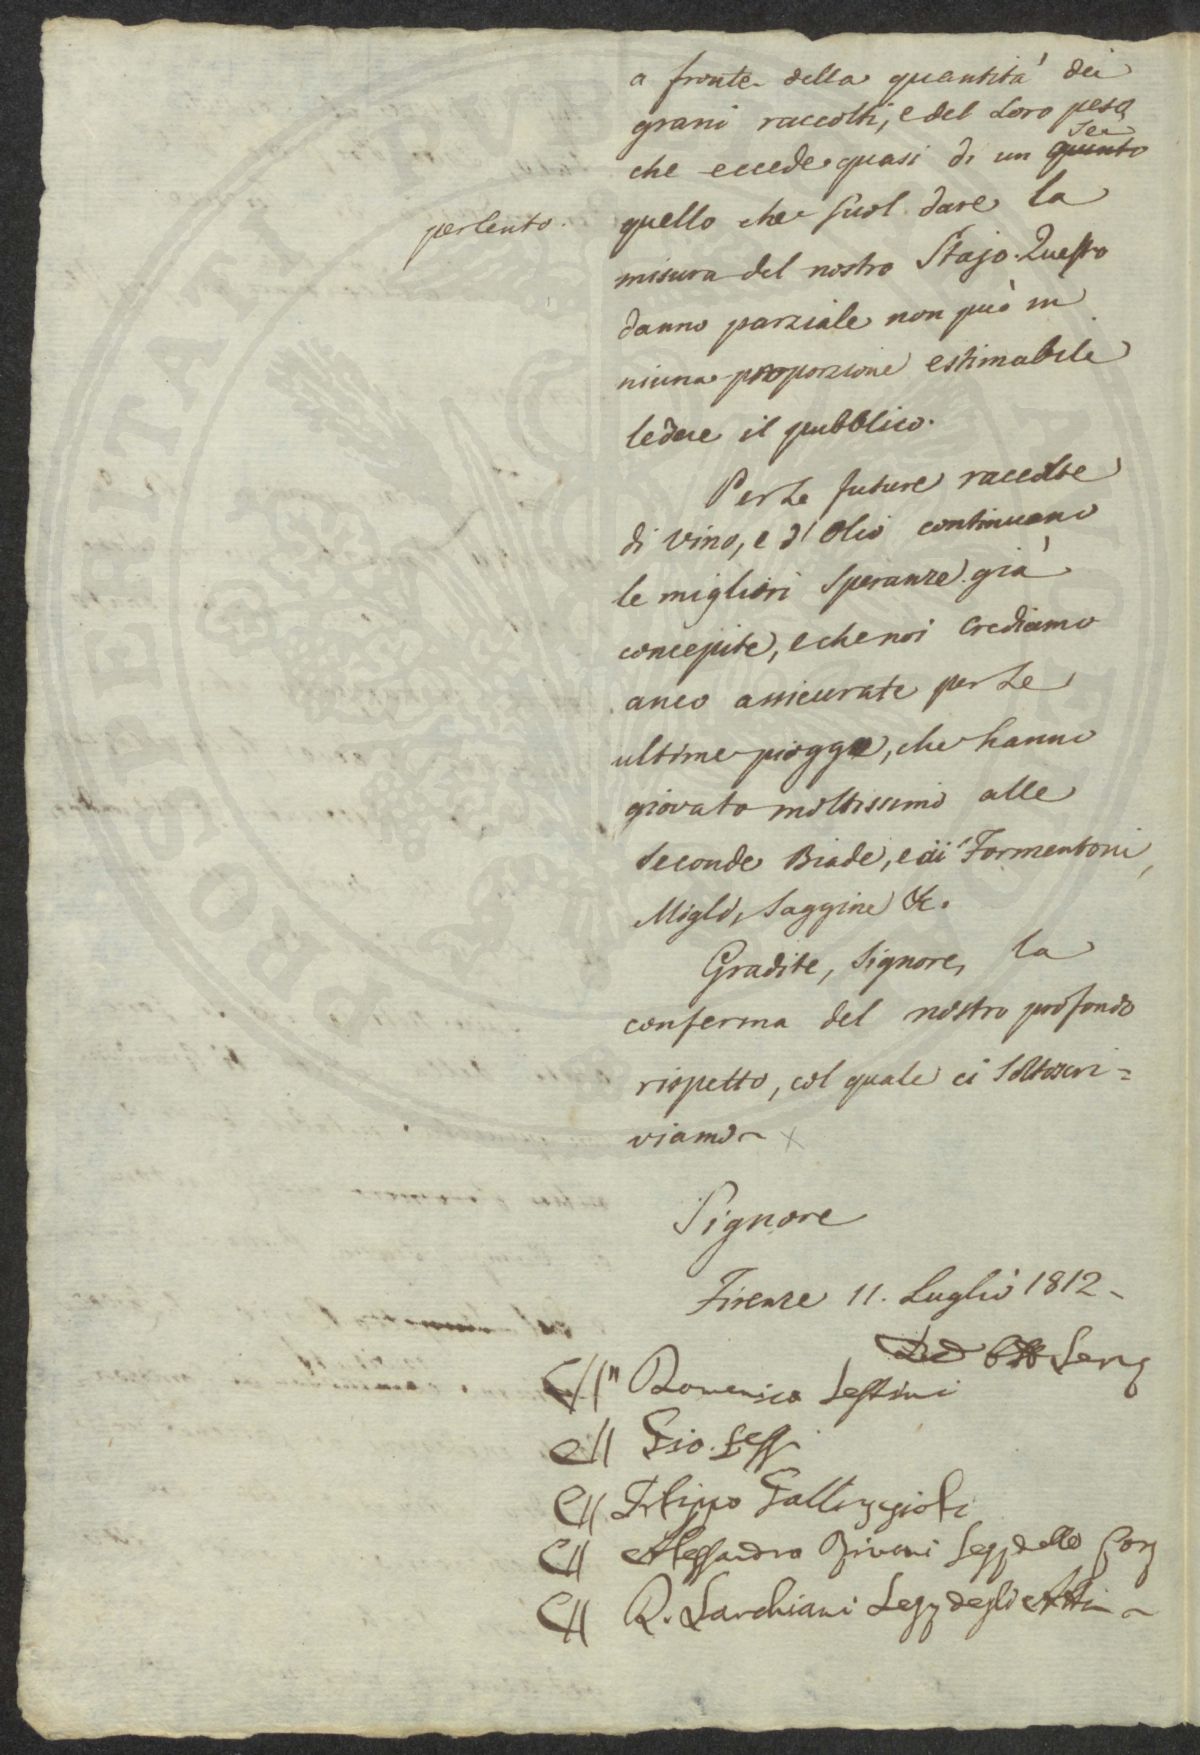 a fronte della quantità dei
grani raccolti, e del loro peso,
che eccede quasi di un quinto
Sei
perCento.
quello che suol dare la
misura del nostro Stajo. Questo
danno parziale non può in
niuna proporzione estimabile
ledere il pubblico.
Per le future raccolte
di vino, e d'Olio continuano
le migliori speranze già
concepite, e che noi crediamo
anco assicurate per le
ultime piogge, che hanno
giovato moltissimo alle
seconde Biade, e ai Formentoni,
Migli, Saggine &c.
Gradite, Signore, la
conferma del nostro profondo
rispetto, col quale ci sottoscri=
viamo
Signore
Firenze 11. Luglio 1812
Domenico Sestini
Gio.
Filippo Gallizioli
Alessandro Rivani Seg. delle Cor
R. Sarchiani Seg. degli Atti
PROSPERITATI